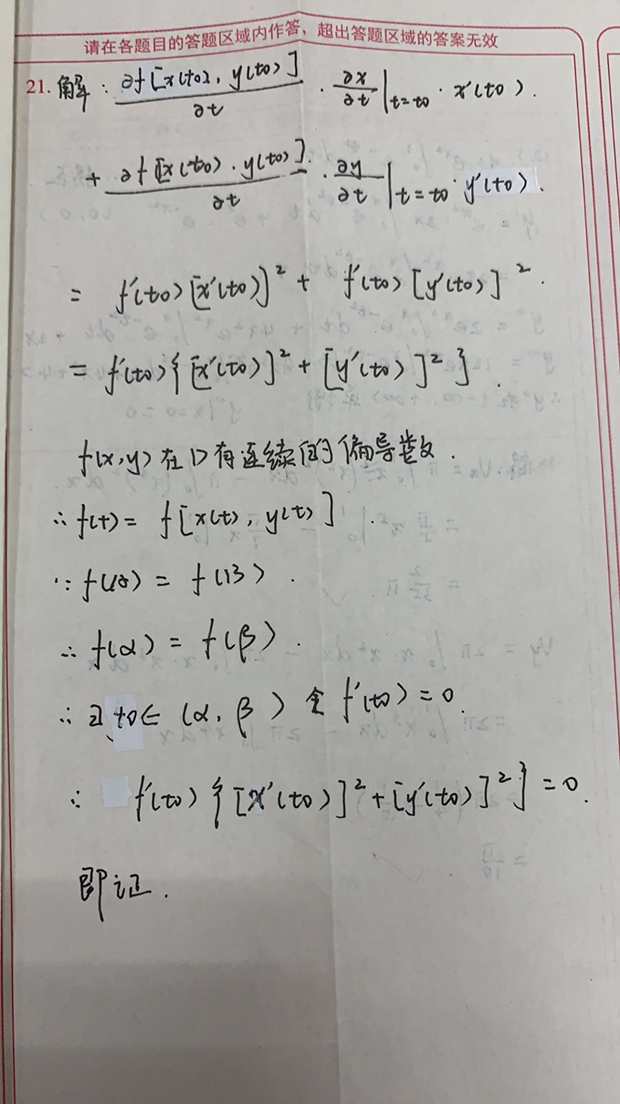 请在各题目的答题区域内作答，超出答题区域的答案无效
21. 解: ∂f[x(t0), y(t0)]/∂t · ∂x/∂t |t=t0 · x'(t0).
+ ∂f[x(t0)·y(t0)]/∂t · ∂y/∂t |t=t0 · y'(t0).
= f'(t0)[x'(t0)]² + f'(t0)[y'(t0)]².
= f'(t0){[x'(t0)]² + [y'(t0)]²}.
f(x,y)在D有连续的偏导数.
∴ f(t) = f[x(t), y(t)].
∵ f(A) = f(B).
∴ f(α) = f(β).
∴ ∃ t0∈(α, β) 令 f'(t0) = 0.
∴ f'(t0){[x'(t0)]² + [y'(t0)]²} = 0.
即证.